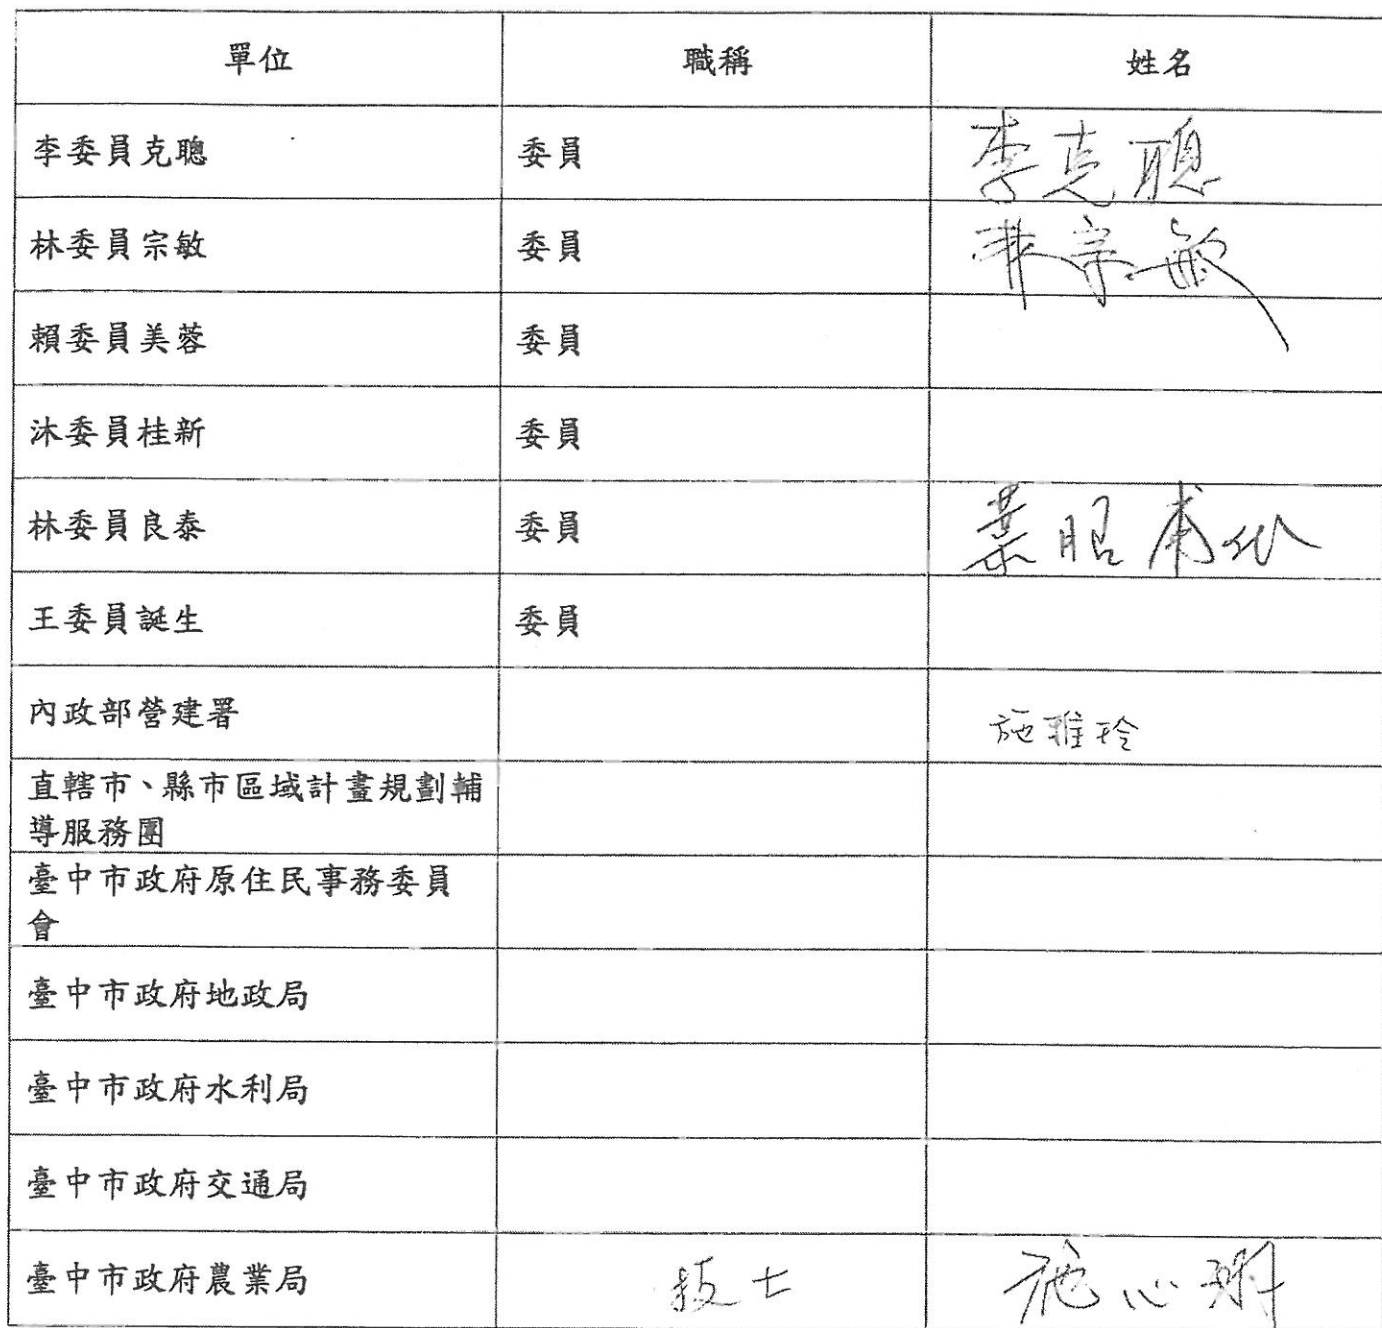 單位 職稱 姓名
李委員克聰 委員 李克聰
林委員宗敏 委員 林宗敏
賴委員美蓉 委員
沐委員桂新 委員
林委員良泰 委員 葉昭甫代
王委員誕生 委員
內政部營建署 施雅玲
直轄市、縣市區域計畫規劃輔
導服務團
臺中市政府原住民事務委員
會
臺中市政府地政局
臺中市政府水利局
臺中市政府交通局
臺中市政府農業局 技士 施心